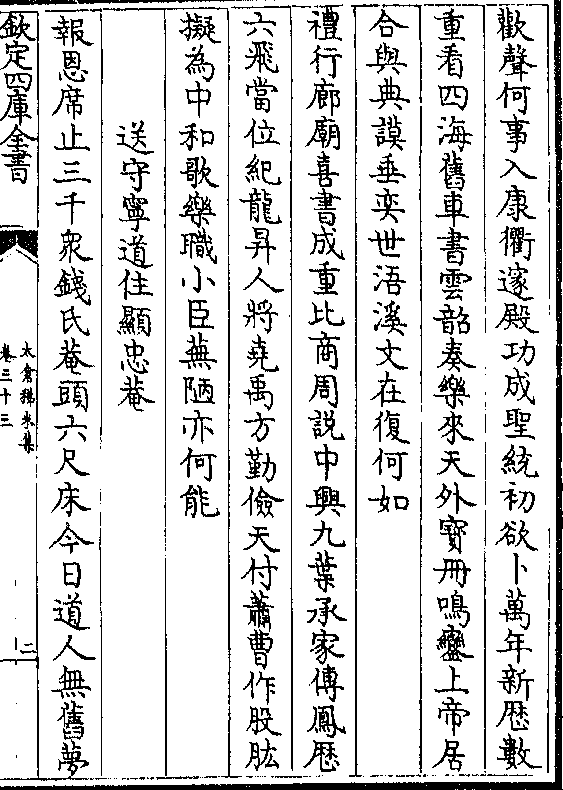 歡聲何事入康衢邃殿功成聖統初欲卜萬年新歴數
重看四海舊車書雲韶奏樂來天外寳冊鳴鑾上帝居
合與典謨垂奕世浯溪文在復何如
禮行廊廟喜書成重比商周説中興九葉承家傳鳳歴
六飛當位紀龍昇人將堯禹方勤儉天付蕭曹作股肱
擬為中和歌樂職小臣蕪陋亦何能
送守寧道住顯忠菴
報恩席止三千衆錢氏菴頭六尺床今日道人無舊夢
欽定四庫全書
太倉稊米集
卷三十三
二